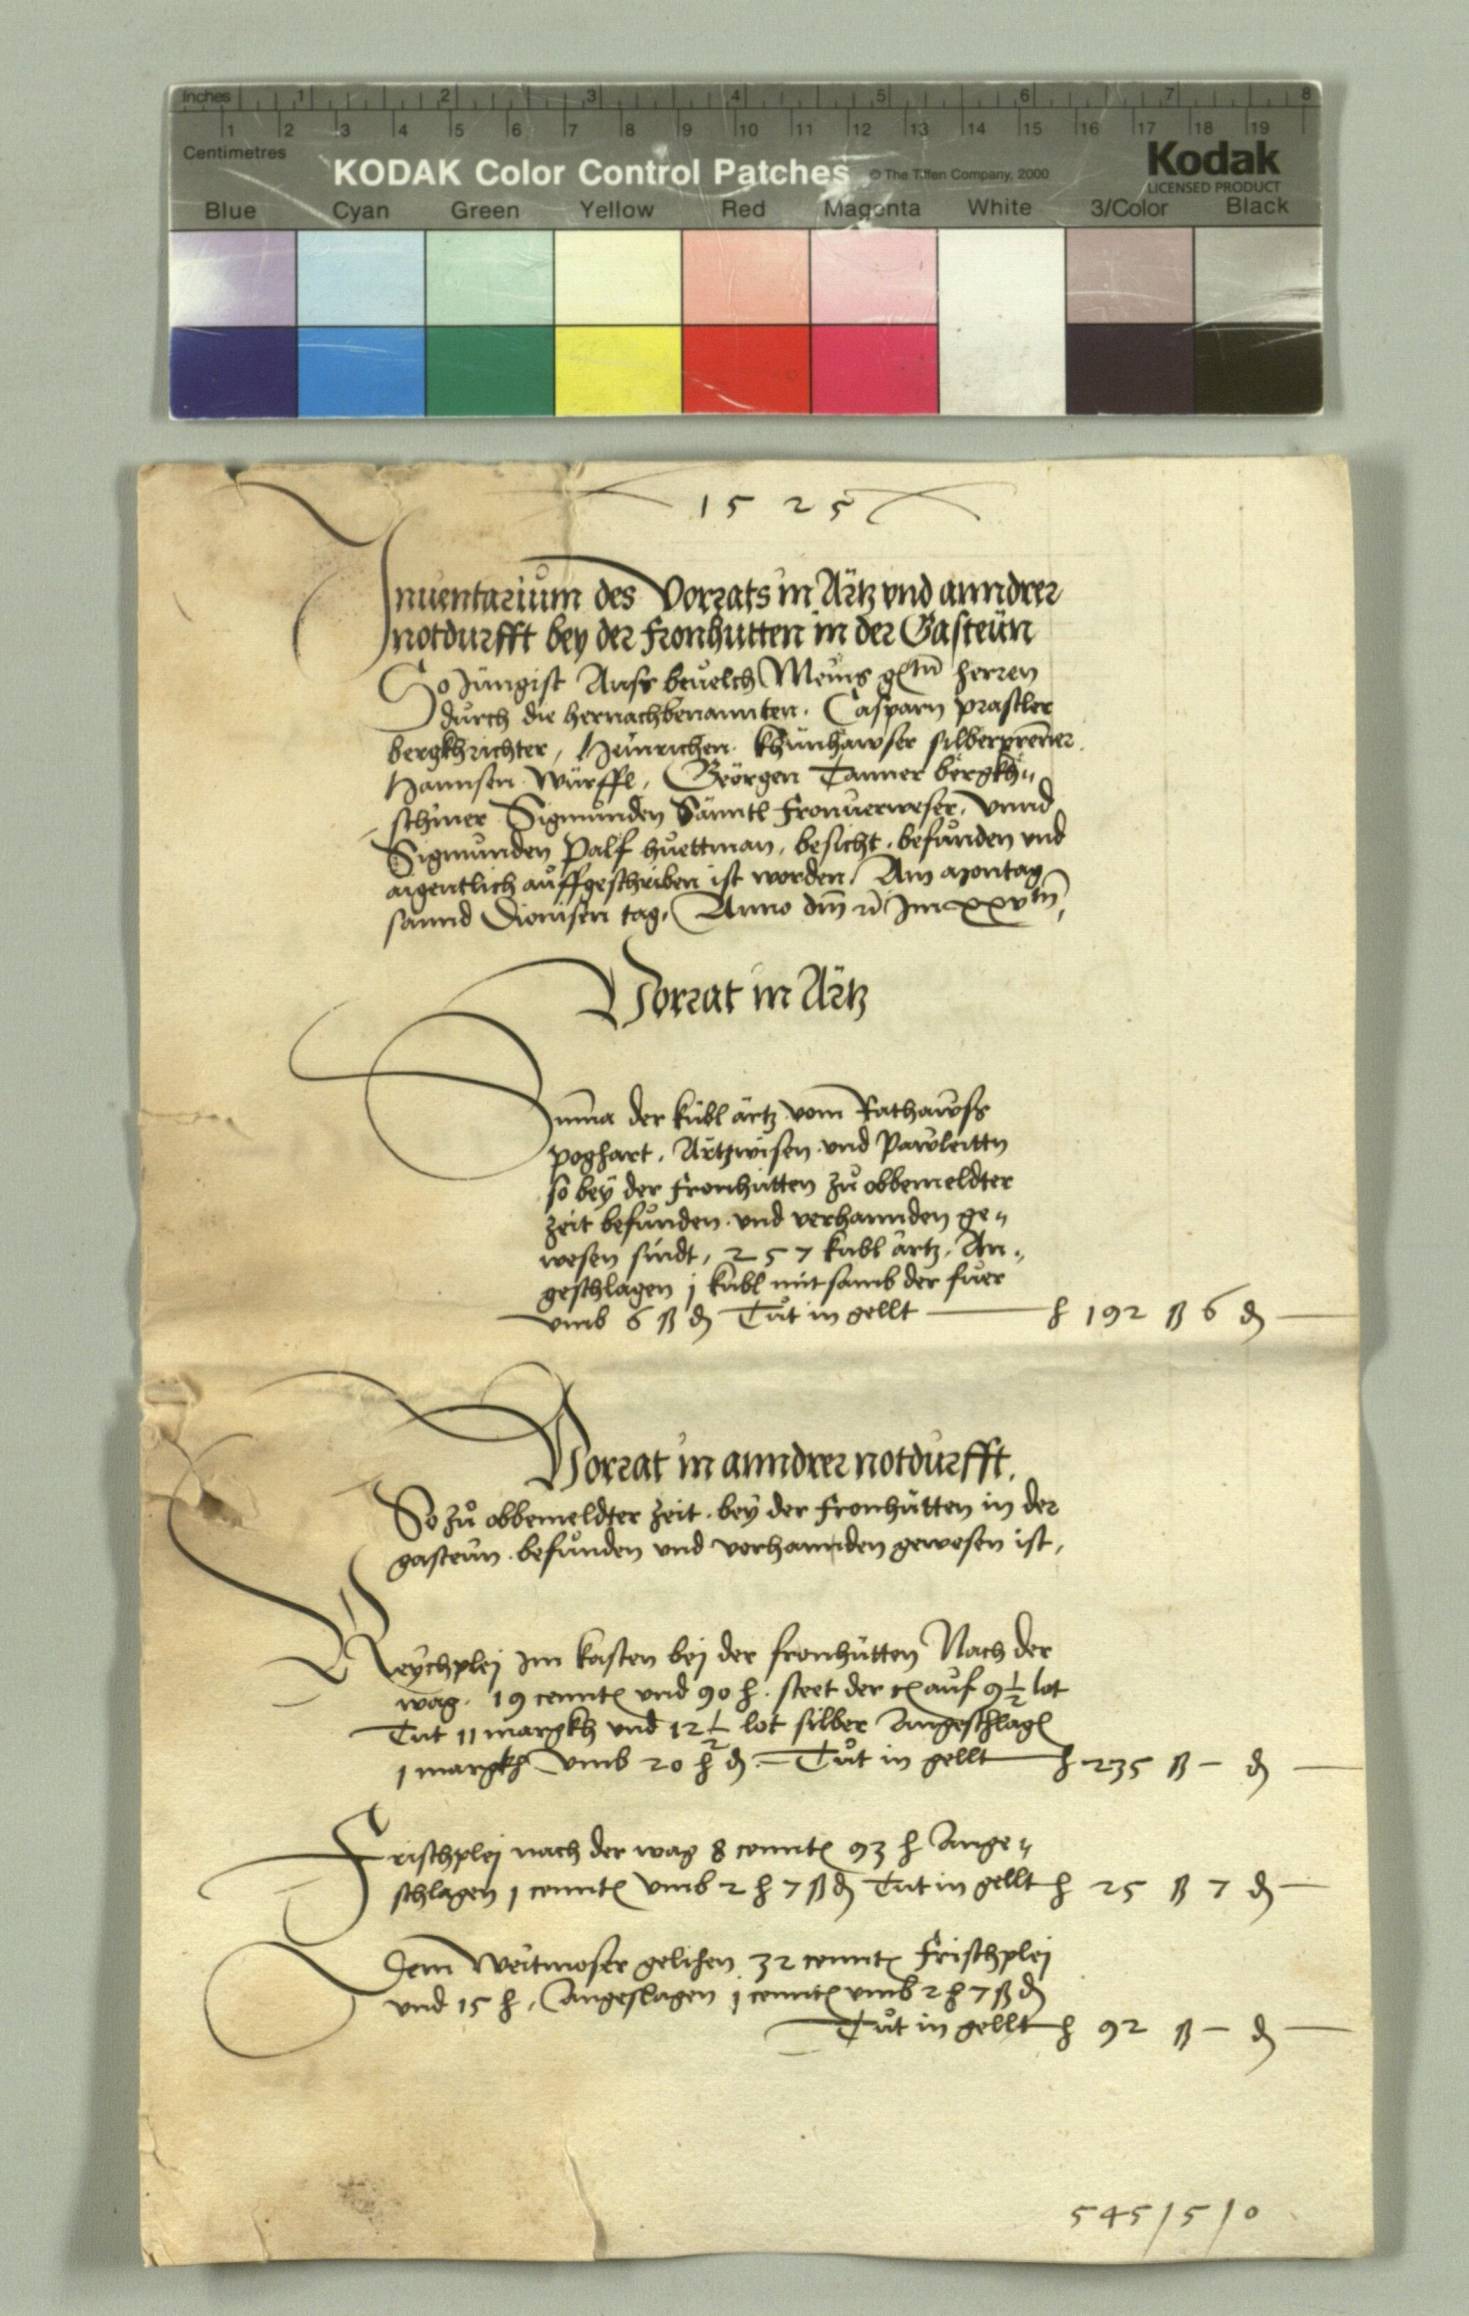 Inches 1 2 3 4 5 6 7 8
1 2 3 4 5 6 7 8 9 10 11 12 13 14 15 16 17 18 19
Centimetres
KODAK Color Control Patches © The Tiffen Company, 2000 Kodak
LICENSED PRODUCT
Blue Cyan Green Yellow Red Magenta White 3/Color Black
1525
Inuentarium des Vorrats in Ärtz vnd anndrer
notdurfft bey der fronhutten in der Gasteün
So Jüngist Auss beuelch Meins herren
durch die hernachbenannten. Casparn prastler
bergkhrichter, Heinrichen khünhawser silberprenner
Hannsen Würffl, Geörgen Tanner bergkh„
schiner Sigmunden Fronuerweser, vnnd
Sigmunden Palf huettman, besicht, befunden vnd
aigentlich auffgeschriben ist worden, Am montag
sannd Dionisen tag, Anno dm̄ im xxv tn̄
Vorrat in Ärtz
Summa der kübl ärtz vom Rathawss
poghart, Ärtzwisen vnd Pawleittn
so bey der fronhütten zu obbemeldter
zeit befunden vnd verhannden ge„
wesen sindt, 257 kübl ärtz, An„
geschlagen j kübl mitsamb der fuer
vmb 6 ß ₰ Tůt in gellt ℔ 192 ß 6 ₰
Vorrat in anndrer notdurfft.
So zů obbemeldter zeit bey der fronhütten in der
gasteün befunden vnd verhannden gewesen ist,
Reychplej im kasten bej der fronhütten Nach der
wag. 19 cennt vnd 90 ℔. steet der auf 9 1/2 lot
Tut 11 margkh vnd 12 1/2 lot silber Angeschlag
1 margkh vmb 20 ℔ ₰. Tůt in gellt ℔ 235 ß – ₰
Frischplej nach der wag 8 cennt 93 ℔ Ange„
schlagen 1 cennt vmb 2 ℔ 7 ß ₰ Tut in gellt ℔ 25 ß 7 ₰
Dem Weitmoser gelihen 32 cennt frischplej
vnd 15 ℔, Angeslagen j cennt vmb 2 ℔ 7 ß ₰
Tůt in gellt ℔ 92 ß – ₰
545/5/0